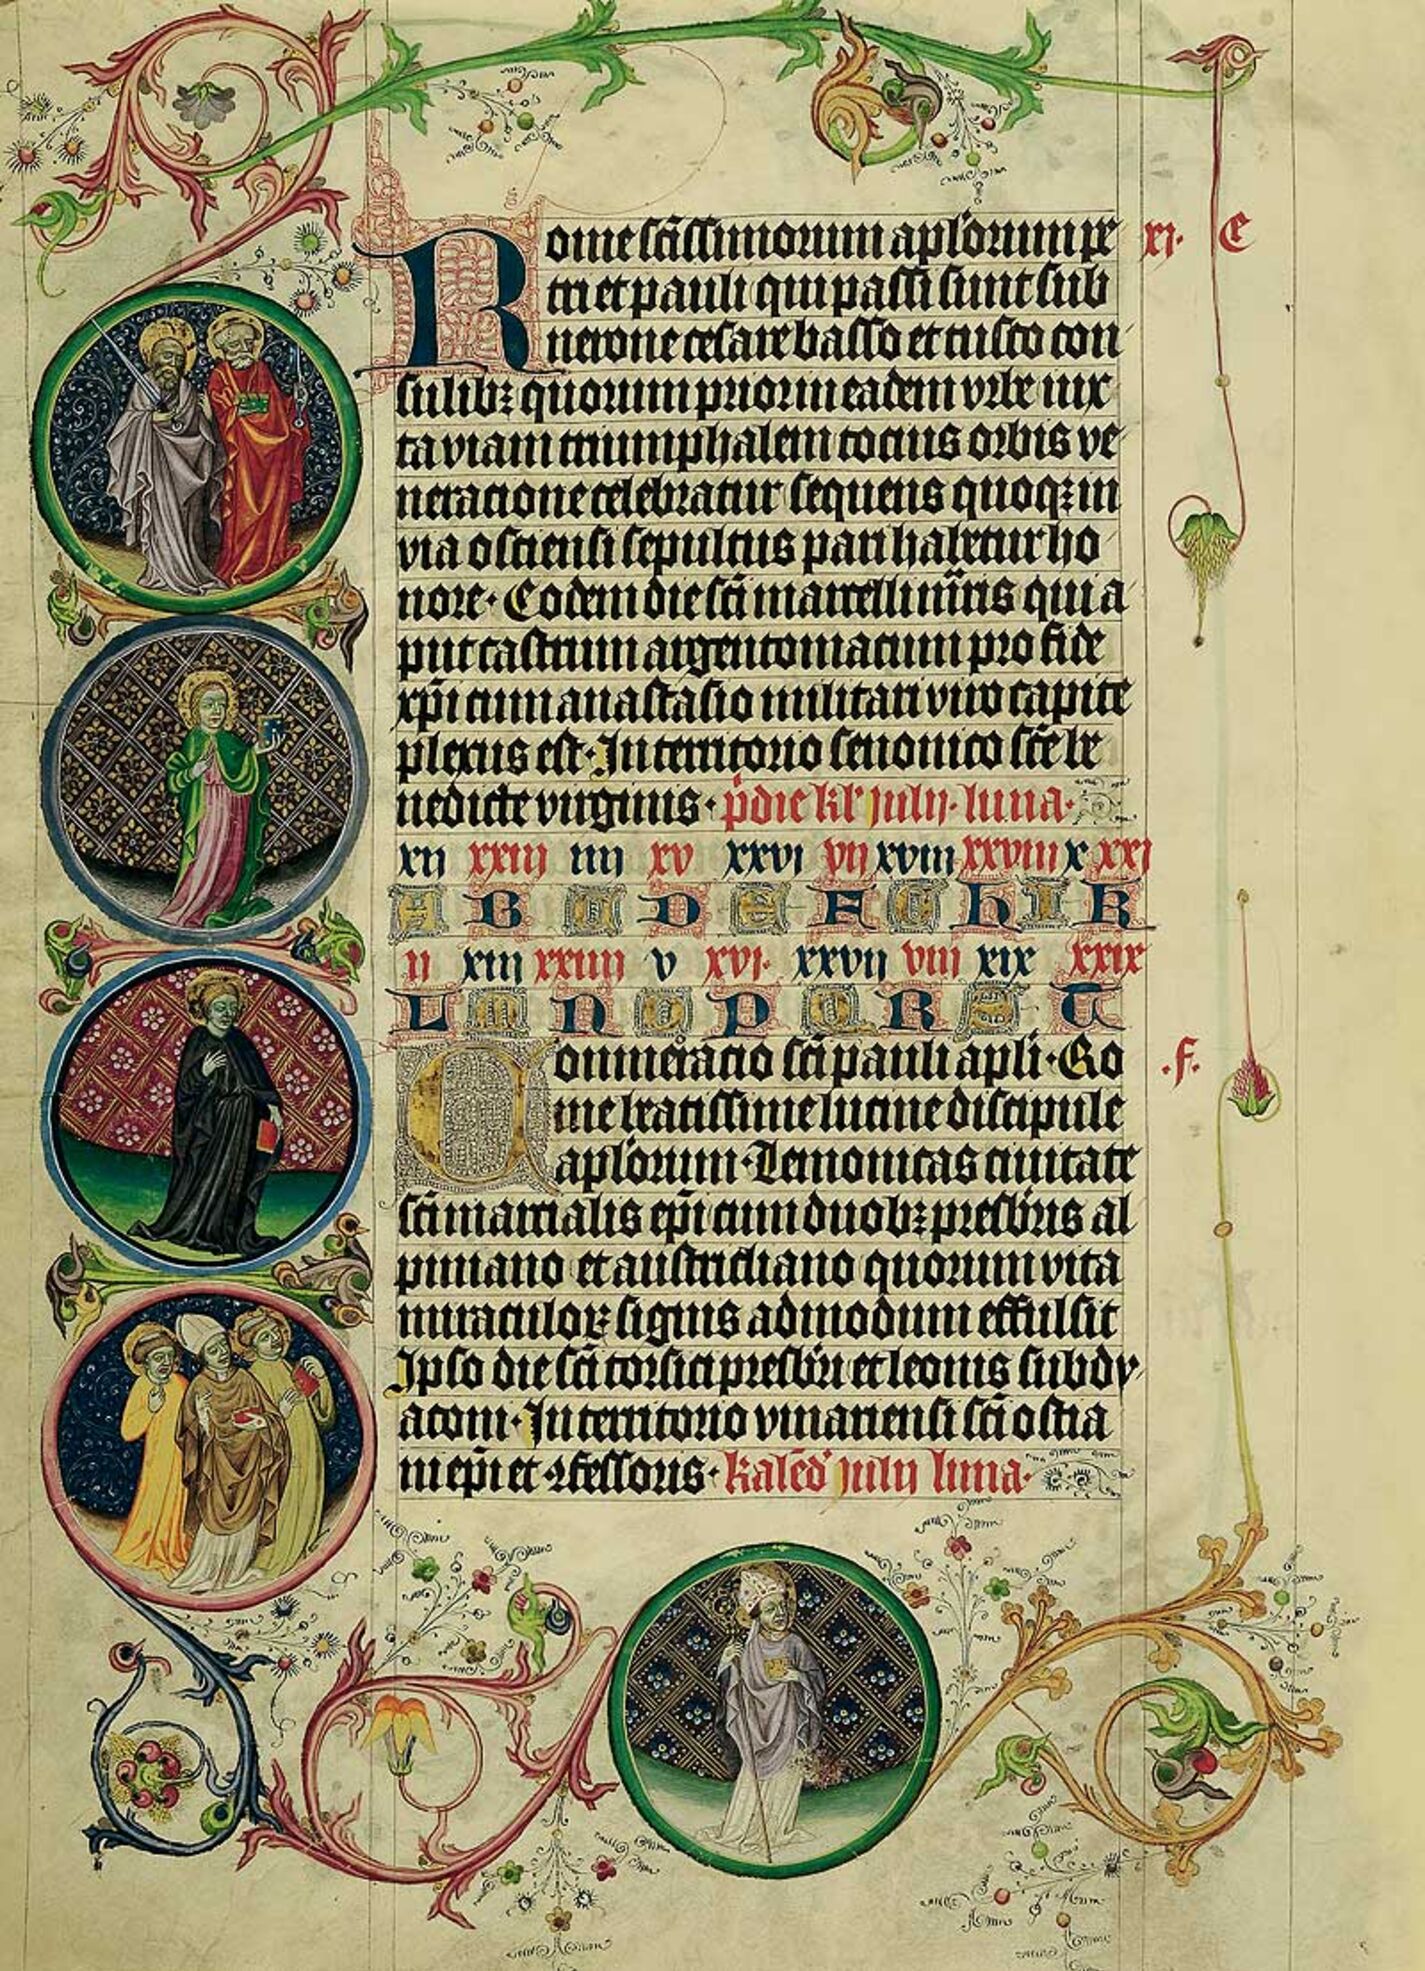 Rome sc̄issimorum apl'orum pe xi· e
tri et pauli qui passi sunt sub
nerone cesare basso et tusco con
sulibꝫ quorum prior in eadem vrbe iux
ta viam triumphalem tocius orbis ve
neracione celebratur sequens quoqꝫ in
via ostiensi sepultus pari habetur ho
nore· Eodem die sc̄i marcelli mr̄is qui a
put castrum argentomacum pro fide
xp̄i cum anastasio militari viro capite
plexus est· In territorio senonico sc̄e be
nedicte virginis· p̄die kl' julij· luna·
xij xxiij iiij xv xxvi vij xviij xxviij x xxi
A B C D E F G h I K
ij xiij xxiiij v xvi· xxvij viij xix xxix
L M N O P Q R S T
Commēracio sc̄i pauli apl'i· Ro ·f·
me beatissime lucine discipule
apl'orum· Lemonicas ciuitate
sc̄i marcialis ep̄i cum duobꝫ presbr̄is al
piniano et austricliano quorum vita
miraculoꝝ signis admodum effulsit
Ipso die sc̄i corsici presbr̄i et leonis subdy
aconi· In territorio vinariensi sc̄i ostia
ni ep̄i et ꝯfessoris· kaleñd julij luna·